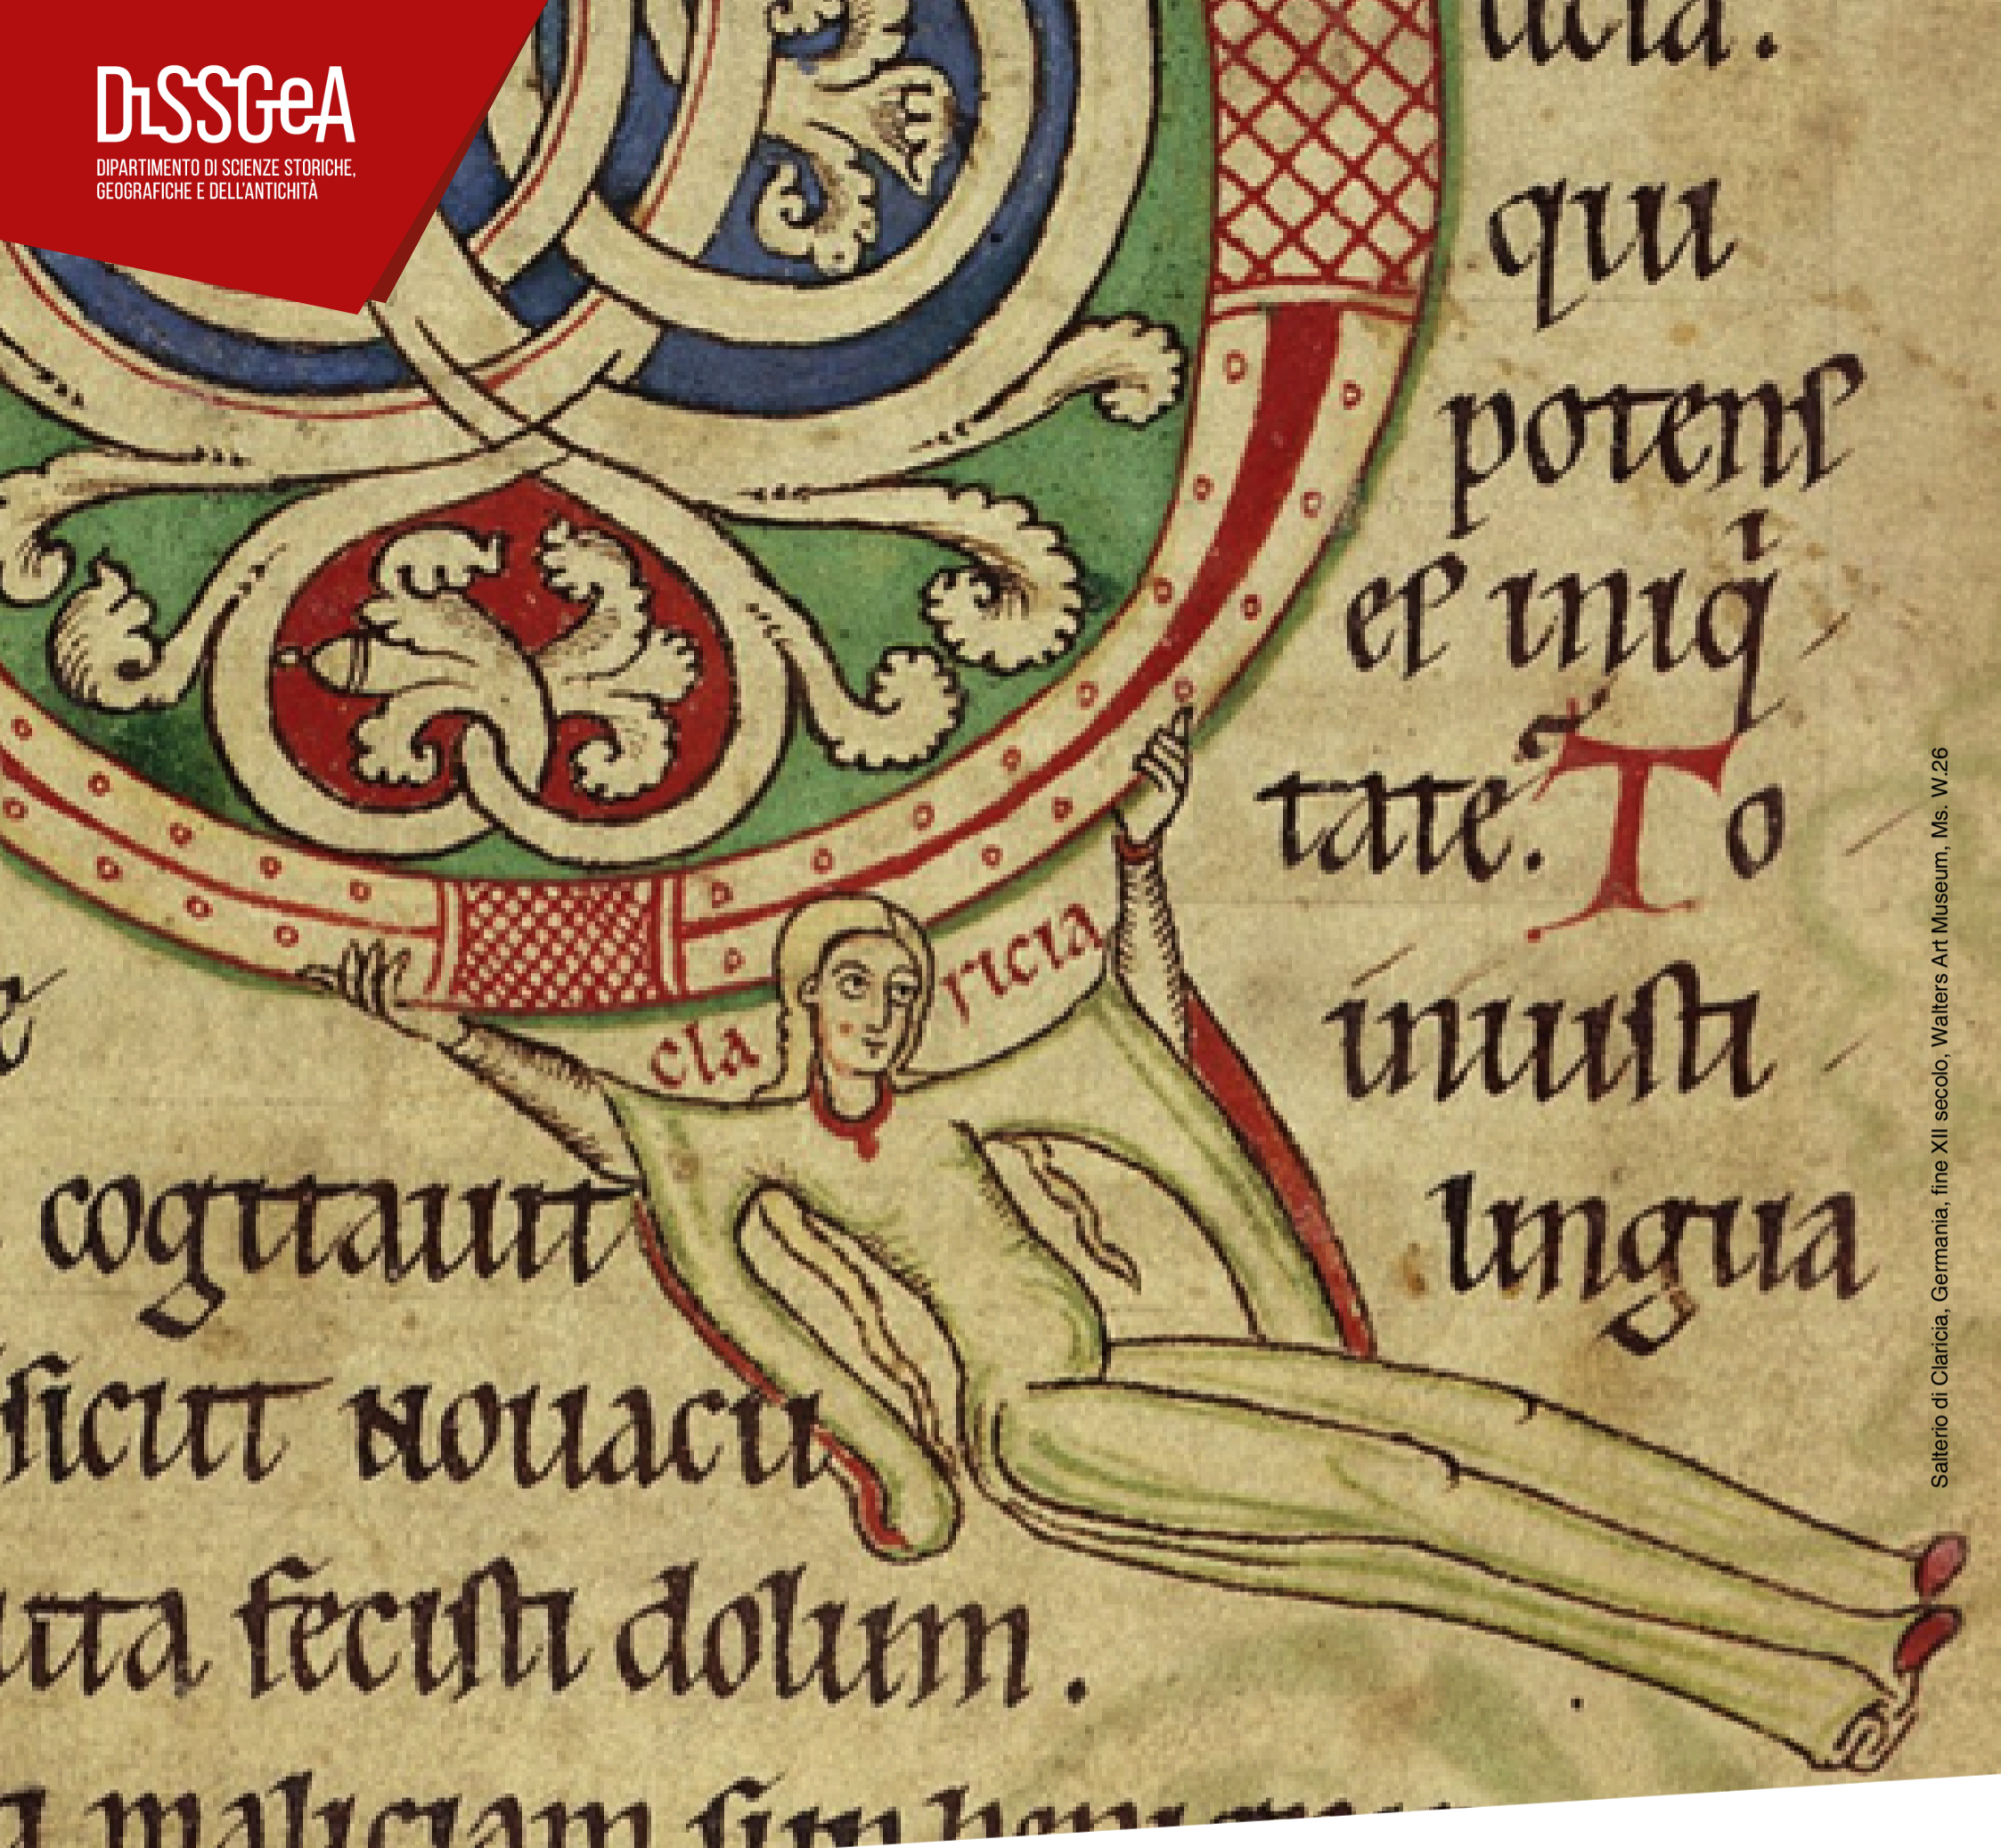 DiSSGeA
DIPARTIMENTO DI SCIENZE STORICHE,
GEOGRAFICHE E DELL'ANTICHITÀ
ucia.
qui
potenſ
eſ iniqͥ
tate. To
cla ricia
iniuſti
cogitauit lingua
ſicut nouacu
fecisti dolum.
maliciam
Salterio di Claricia, Germania, fine XII secolo, Walters Art Museum, Ms. W.26